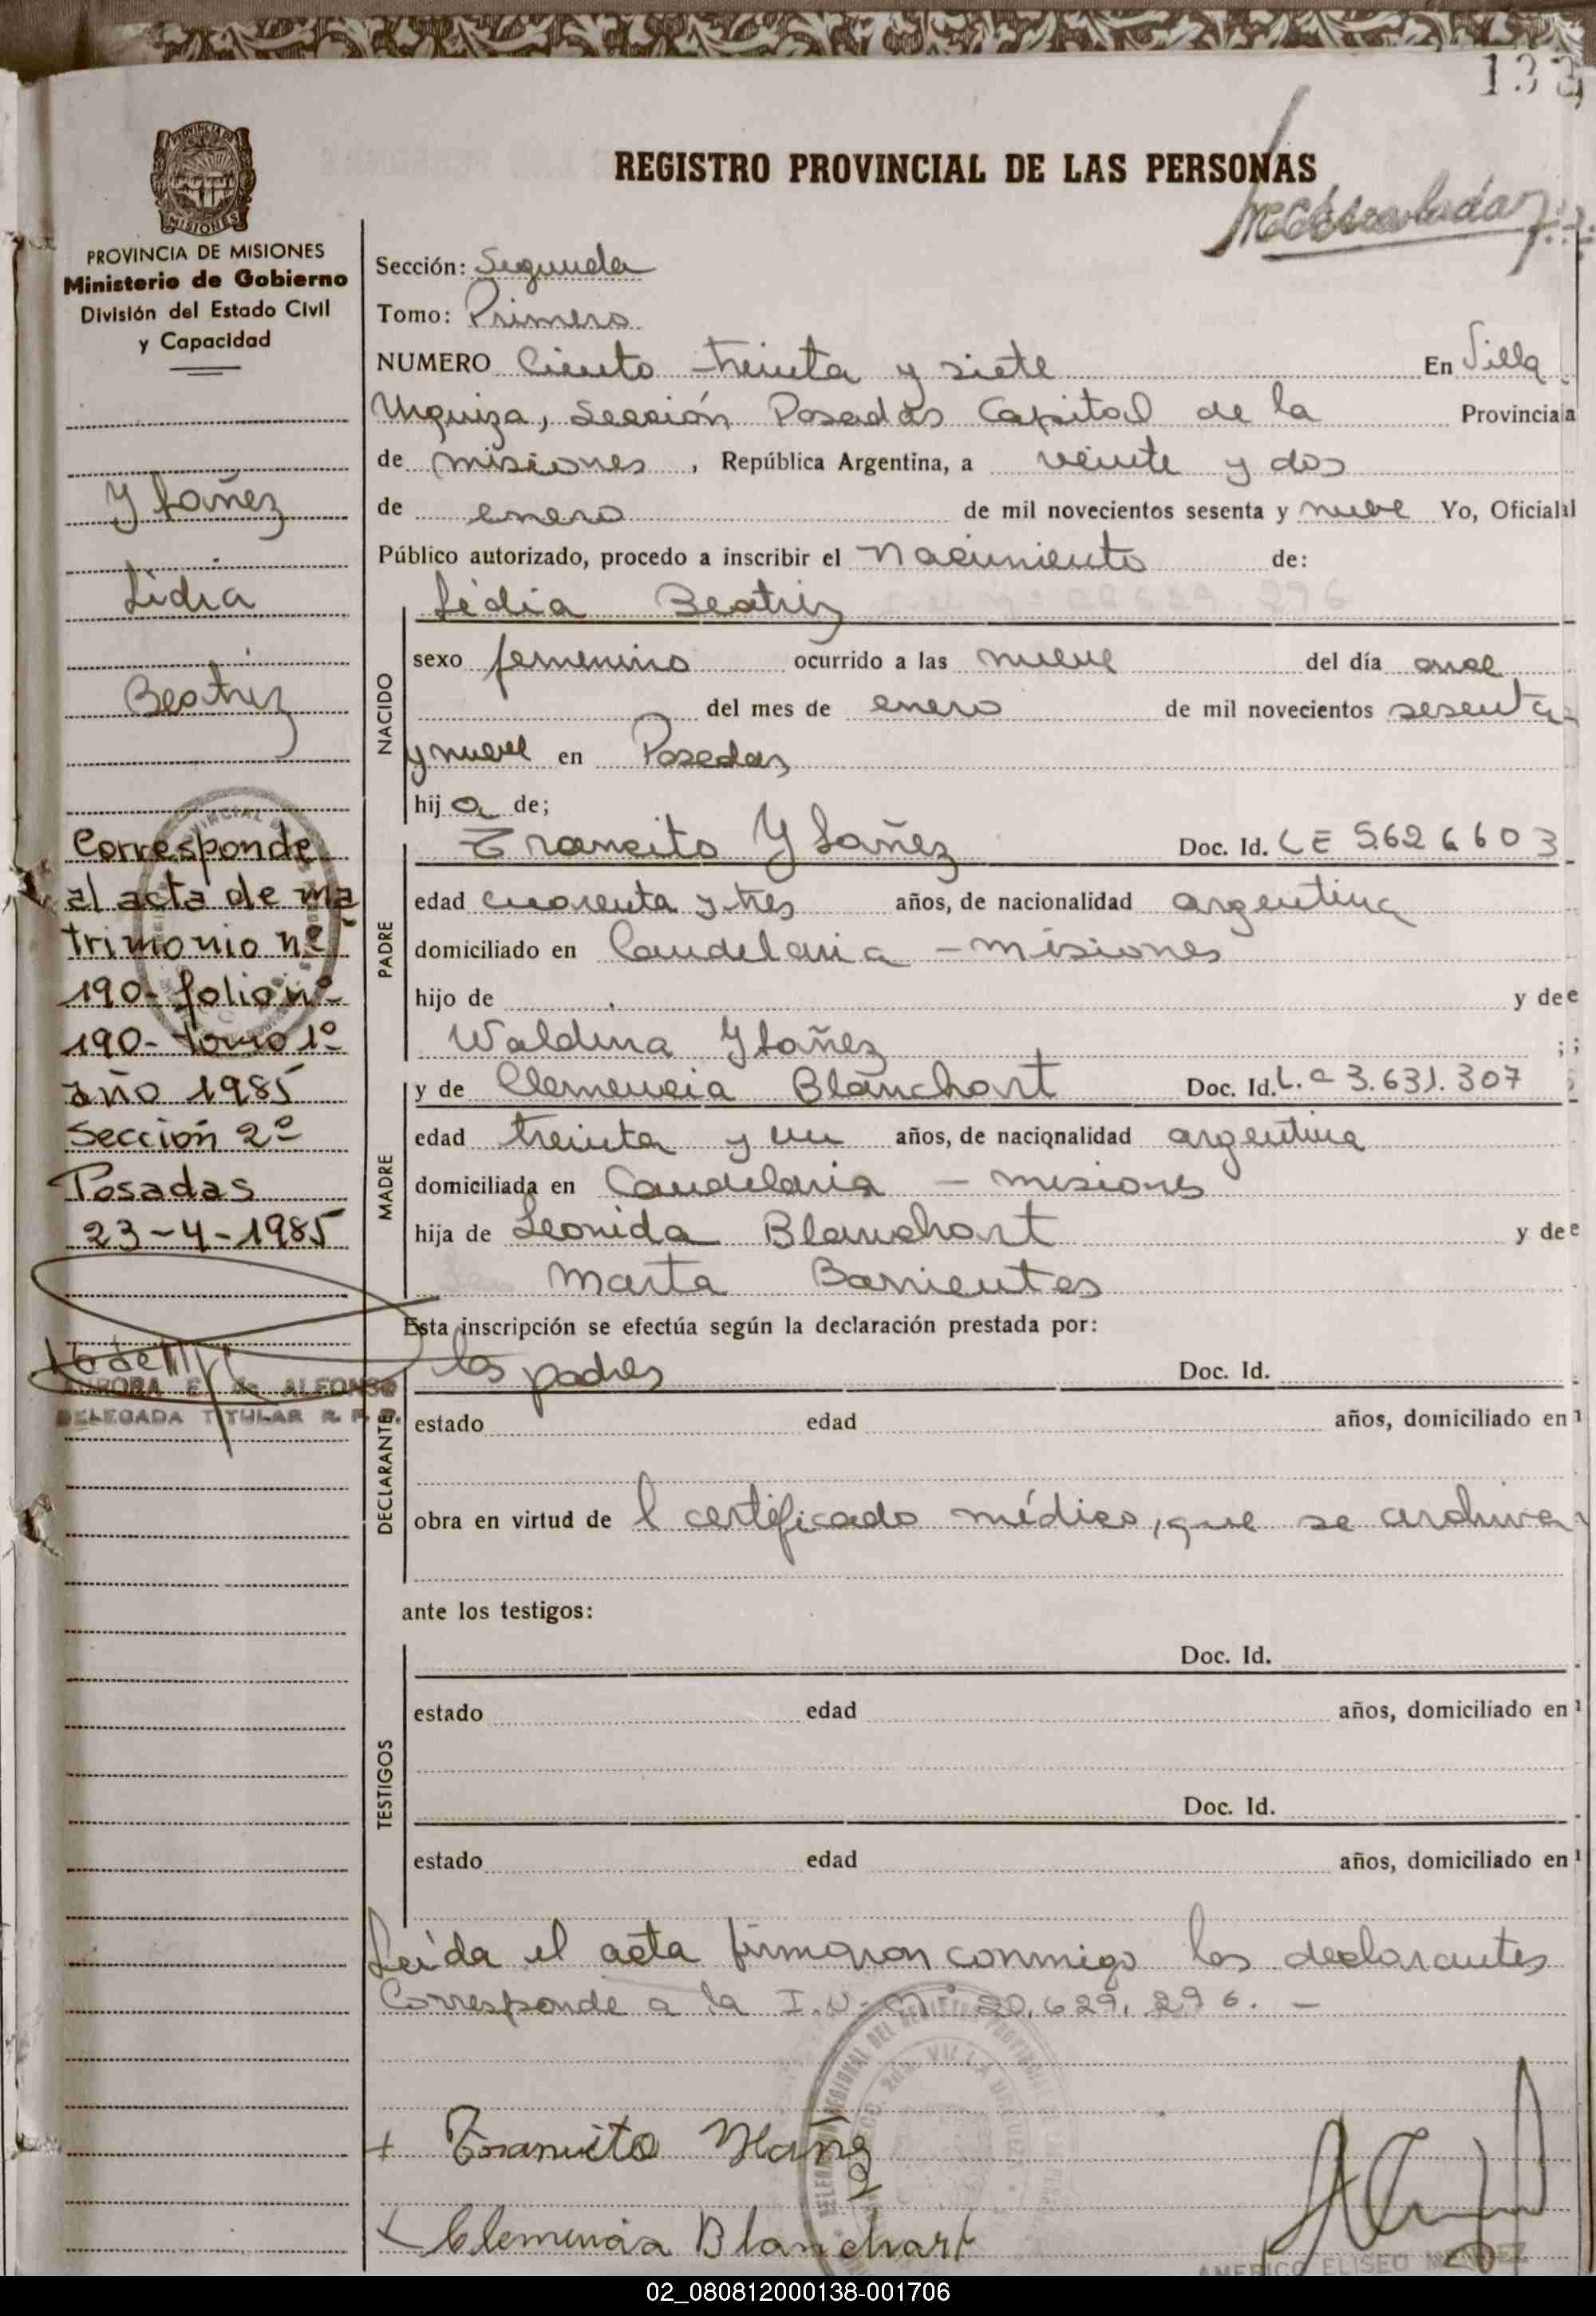 133
PROVINCIA DE
MISIONES
REGISTRO PROVINCIAL DE LAS PERSONAS
PROVINCIA DE MISIONES
Ministerio de Gobierno
División del Estado Civil
y Capacidad
Ytañez
Lidia
Beatriz
Corresponde
al acta de ma
trimonio nº
190- folio nº
190- tomo 1º
año 1985
Sección 2º
Posadas
23-4-1985
AURORA E. de ALFONSO
DELEGADA TITULAR R. P. P.
Sección: Segunda
Tomo: Primero
NUMERO Ciento treinta y siete En Villa
Urquiza, Sección Posadas Capital de la Provincia
de misiones, República Argentina, a veinte y dos
de enero de mil novecientos sesenta y nueve Yo, Oficial
Público autorizado, procedo a inscribir el Nacimiento de:
Lidia Beatriz
NACIDO
sexo femenino ocurrido a las nueve del día once
del mes de enero de mil novecientos sesenta
y nueve en Posadas
hija de;
PADRE
Transito Ytañez Doc. Id. LE 5.626603
edad cuarenta y tres años, de nacionalidad argentina
domiciliado en Candelaria - misiones
hijo de y de
Waldina Ytañez
MADRE
y de Clemencia Blanchart Doc. Id. L.C 3.631.307
edad treinta y un años, de nacionalidad argentina
domiciliada en Candelaria - misiones
hija de Leonida Blanchart y de
Marta Barrientes
Esta inscripción se efectúa según la declaración prestada por:
DECLARANTE
los padres Doc. Id.
estado edad años, domiciliado en
obra en virtud de l certificado médico, que se archiva
ante los testigos:
TESTIGOS
Doc. Id.
estado edad años, domiciliado en
Doc. Id.
estado edad años, domiciliado en
Leída el acta firmaron conmigo los declarantes
Corresponde a la I.U. Nº 20.629.296. -
+ Transito Ytañez
Clemencia Blanchart
AMERICO ELISEO
02_080812000138-001706